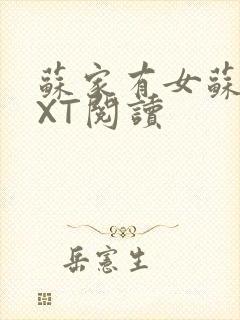 蘇家有女蘇
XT閱讀
岳憲生